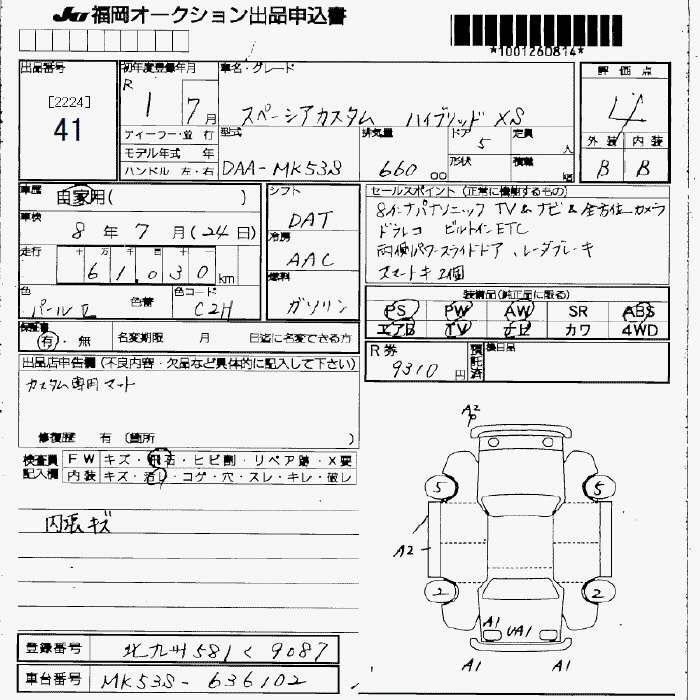 JU 福岡オークション出品申込書
*1001260814*
出品番号
[2224]
41
初年度登録年月
R 1 7月
車名・グレード
スペーシアカスタム ハイブリッド XS
評価点
4
ディーラー・並行
モデル年式 年
ハンドル 左・右
型式
DAA-MK53S
排気量
660 cc
ドア 5
形状
定員 人
積載 kg
外装 内装
B B
車歴
自家用( )
車検
8年 7月(24日)
走行
十万 千
61,030 km
色
パールII
色替
色コード
C2H
シフト
DAT
冷房
AAC
燃料
ガソリン
セールスポイント (正常に機能するもの)
8インチパナソニック TV&ナビ&全方位カメラ
ドラレコ ビルトインETC
両側パワースライドドア、レーダブレーキ
スマートキ2個
装備品(純正品に限る)
PS PW AW SR ABS
エアB TV ナビ カワ 4WD
保証書
有・無
名変期限 月 日迄に名変できる方
R券
9310円
預託済
後日品
出品店申告欄(不良内容・欠品など具体的に記入して下さい)
カスタム専用マット
修復歴 有 (箇所 )
検査員記入欄
FW キズ・飛石・ヒビ割・リペア跡・X要
内装 キズ・汚れ・コゲ・穴・スレ・キレ・破レ
内張キズ
A2
P
5 5
A2
2 2
A1
UA1
A1 A1
登録番号 北九州 581 く 9087
車台番号 MK53S-636102